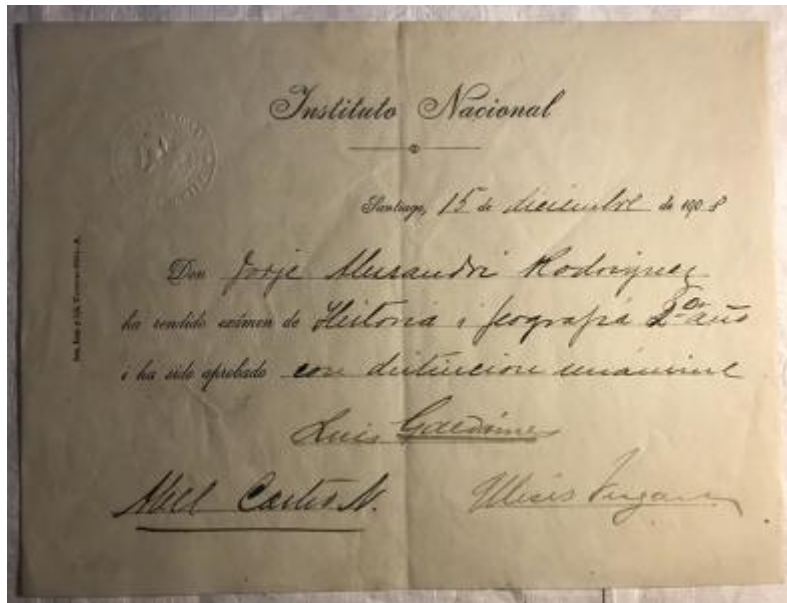 Instituto Nacional
Santiago, 15 de diciembre de 1908
Don Jorje Alessandri Rodriguez
ha rendido exámen de Historia i jeografía 2º año
i ha sido aprobado con distincion unánime
Luis Galdámes
Abel Cortés N.
Ulises Vergara